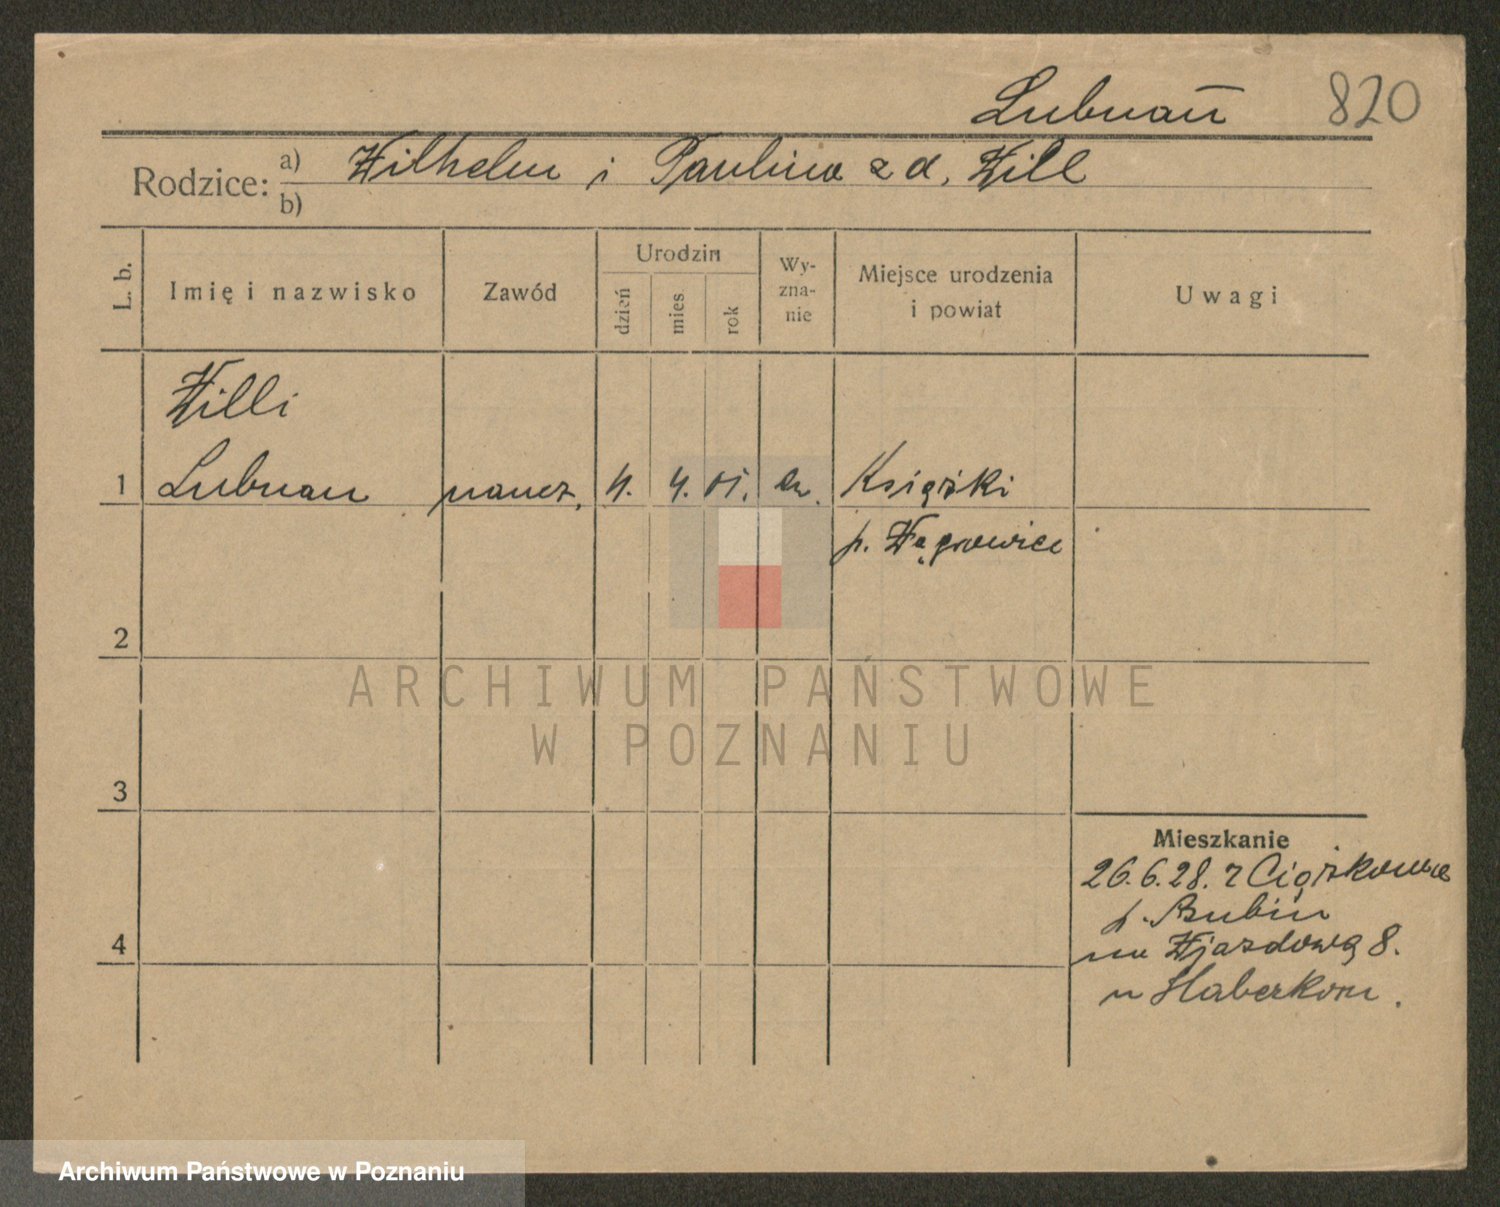 Lubnau 820
Rodzice: a) Wilhelm i Paulina z d. Will
b)
L. b. Imię i nazwisko Zawód Urodzin dzień mies rok Wyznanie Miejsce urodzenia i powiat Uwagi
Willi
1 Lubnau naucz. 4. 01. ew. Książki
p. Wągrowiec
2
ARCHIWUM PAŃSTWOWE
W POZNANIU
3
Mieszkanie
26.6.28. z
p.
4 na Wjazdową 8.
u Haberkorn.
Archiwum Państwowe w Poznaniu